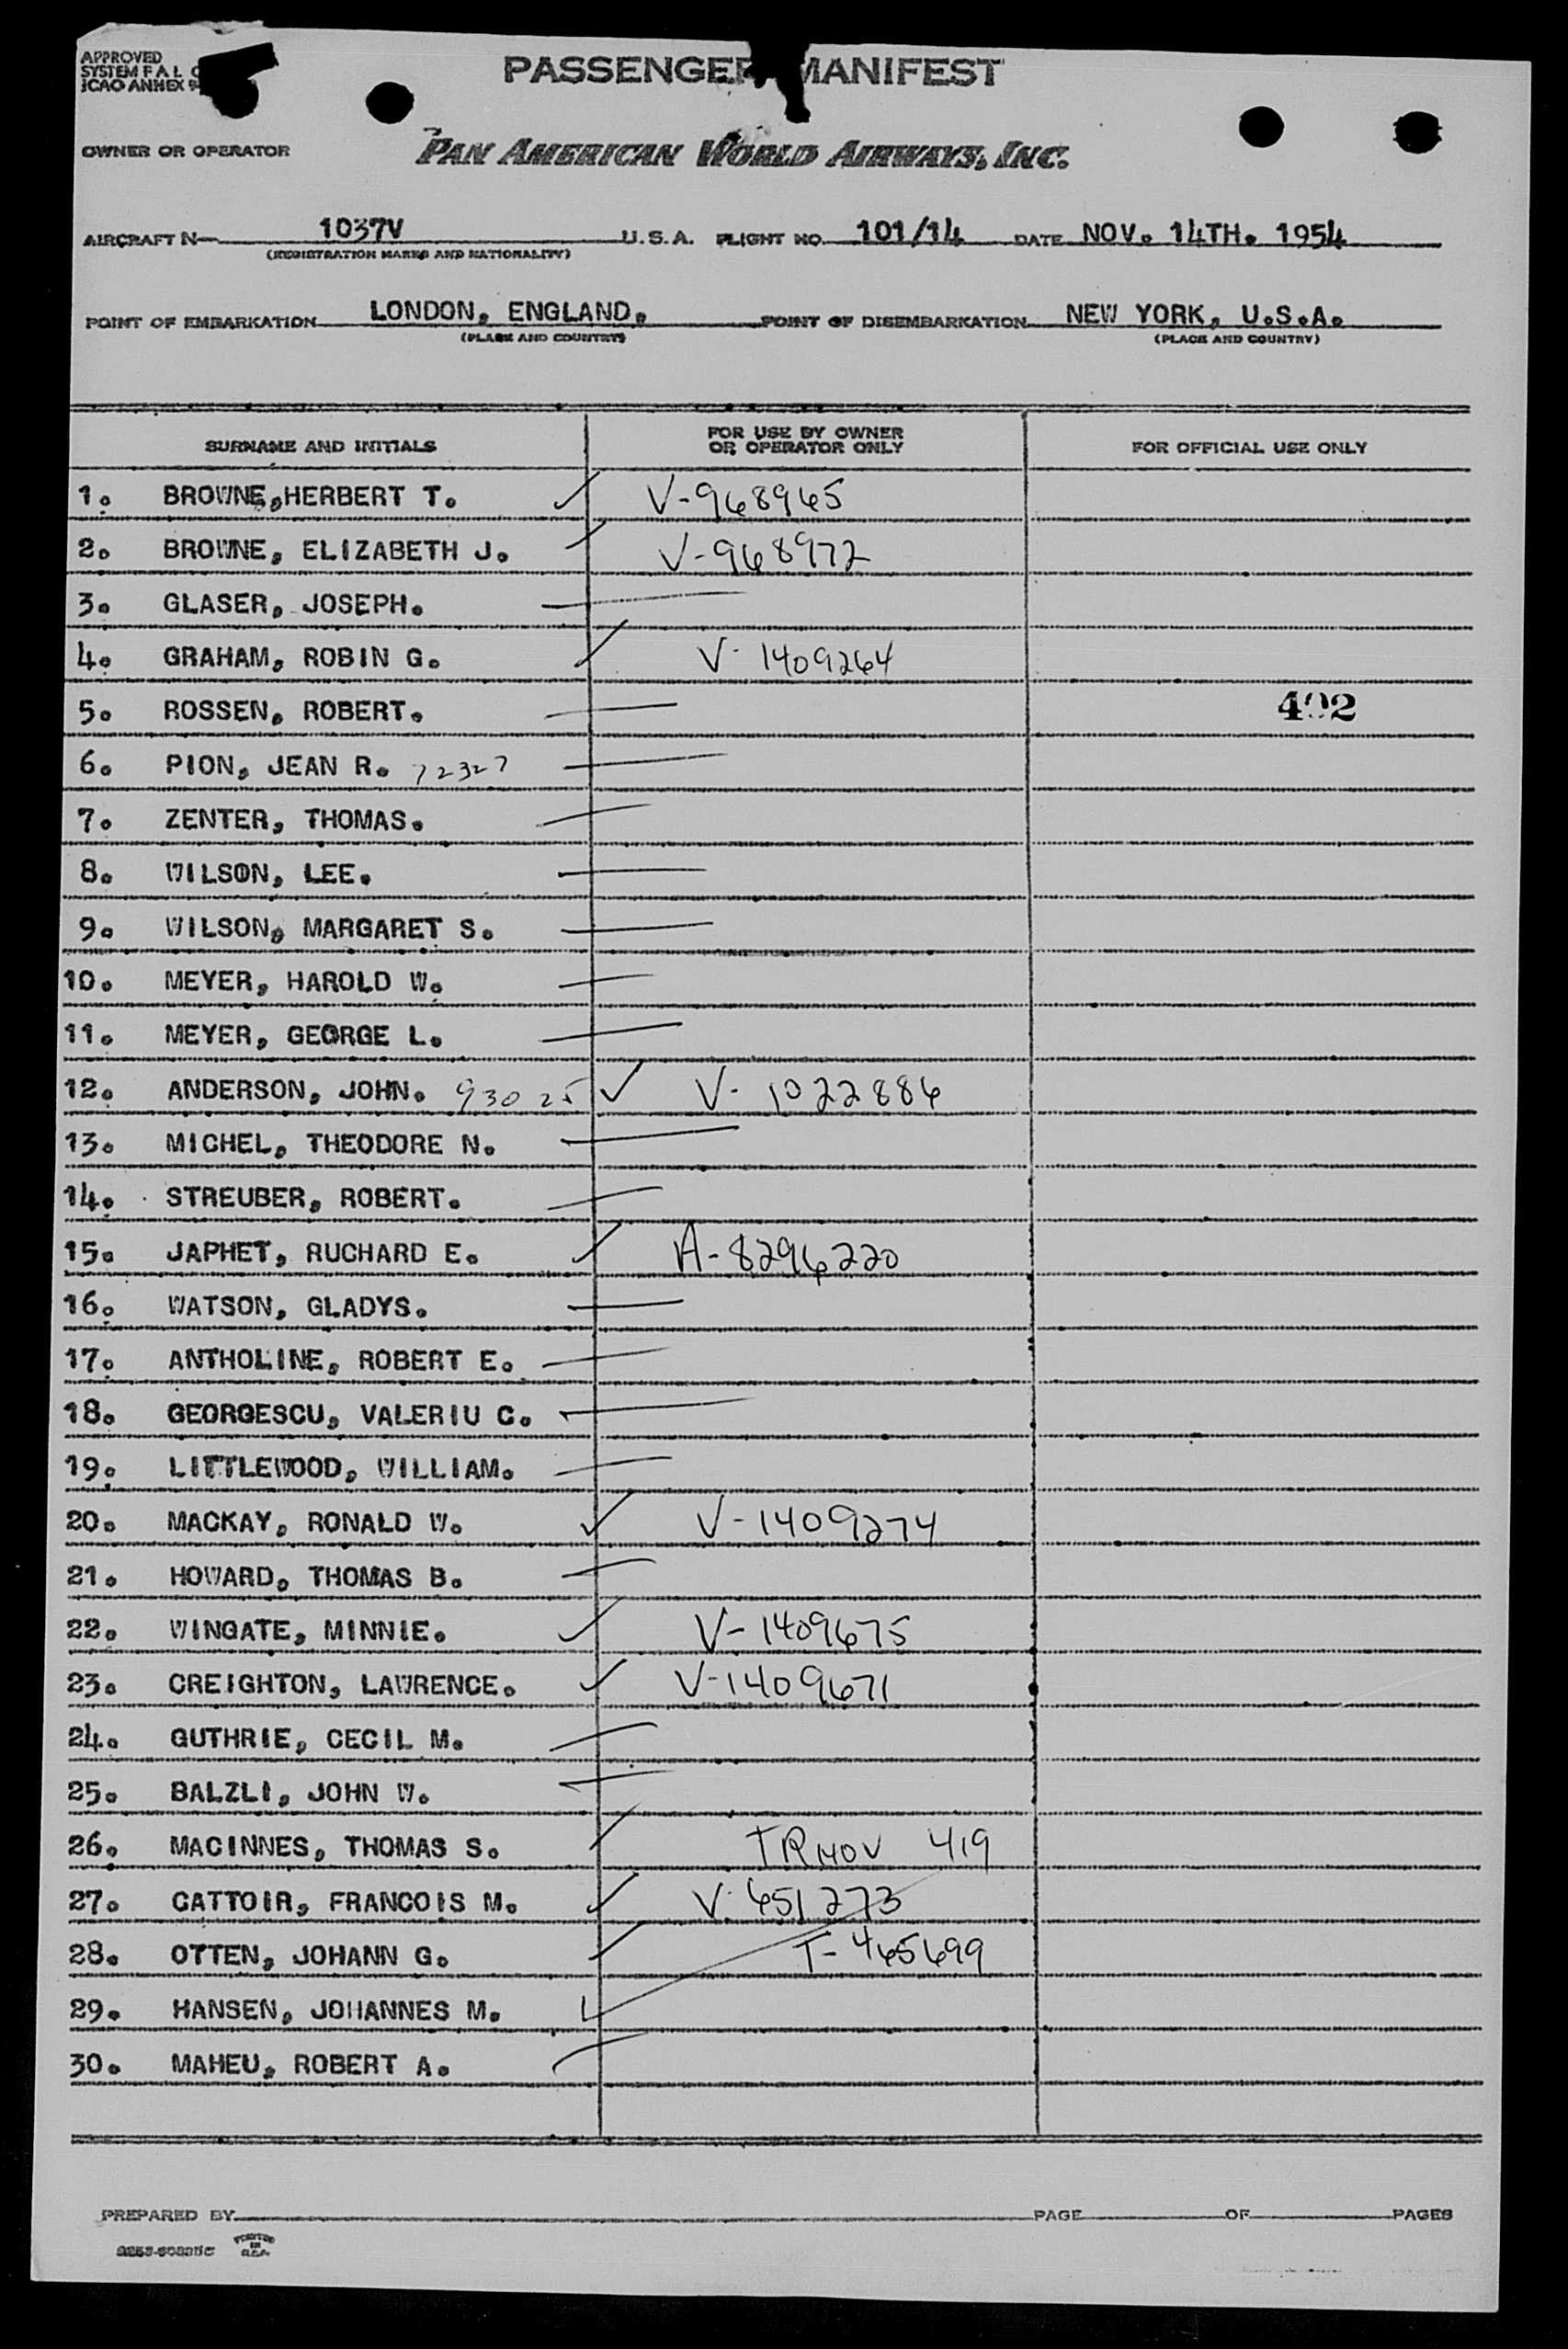 APPROVED
SYSTEM F A L
ICAO ANNEX 9
PASSENGER MANIFEST
OWNER OR OPERATOR PAN AMERICAN WORLD AIRWAYS, INC.
AIRCRAFT N- 1037V U.S.A. FLIGHT NO. 101/14 DATE NOV. 14TH. 1954
(REGISTRATION MARKS AND NATIONALITY)
POINT OF EMBARKATION LONDON, ENGLAND. POINT OF DISEMBARKATION NEW YORK, U.S.A.
(PLACE AND COUNTRY) (PLACE AND COUNTRY)
SURNAME AND INITIALS FOR USE BY OWNER OR OPERATOR ONLY FOR OFFICIAL USE ONLY
1. BROWNE,HERBERT T. ✓ V-968965
2. BROWNE, ELIZABETH J. V-968972
3. GLASER, JOSEPH.
4. GRAHAM, ROBIN G. ✓ V- 1409264
5. ROSSEN, ROBERT. 402
6. PION, JEAN R. 72327
7. ZENTER, THOMAS.
8. WILSON, LEE.
9. WILSON, MARGARET S.
10. MEYER, HAROLD W.
11. MEYER, GEORGE L.
12. ANDERSON, JOHN. 93025 ✓ V- 1022886
13. MICHEL, THEODORE N.
14. STREUBER, ROBERT.
15. JAPHET, RUCHARD E. ✓ A-8296220
16. WATSON, GLADYS.
17. ANTHOLINE, ROBERT E.
18. GEORGESCU, VALERIU C.
19. LITTLEWOOD, WILLIAM.
20. MACKAY, RONALD W. ✓ V-1409274
21. HOWARD, THOMAS B.
22. WINGATE, MINNIE. ✓ V-1409675
23. CREIGHTON, LAWRENCE. ✓ V-1409671
24. GUTHRIE, CECIL M.
25. BALZLI, JOHN W.
26. MACINNES, THOMAS S. ✓ 419
27. CATTOIR, FRANCOIS M. ✓ V-651273
28. OTTEN, JOHANN G. ✓ T-465699
29. HANSEN, JOHANNES M.
30. MAHEU, ROBERT A.
PREPARED BY PAGE OF PAGES
PRINTED
IN
U.S.A.